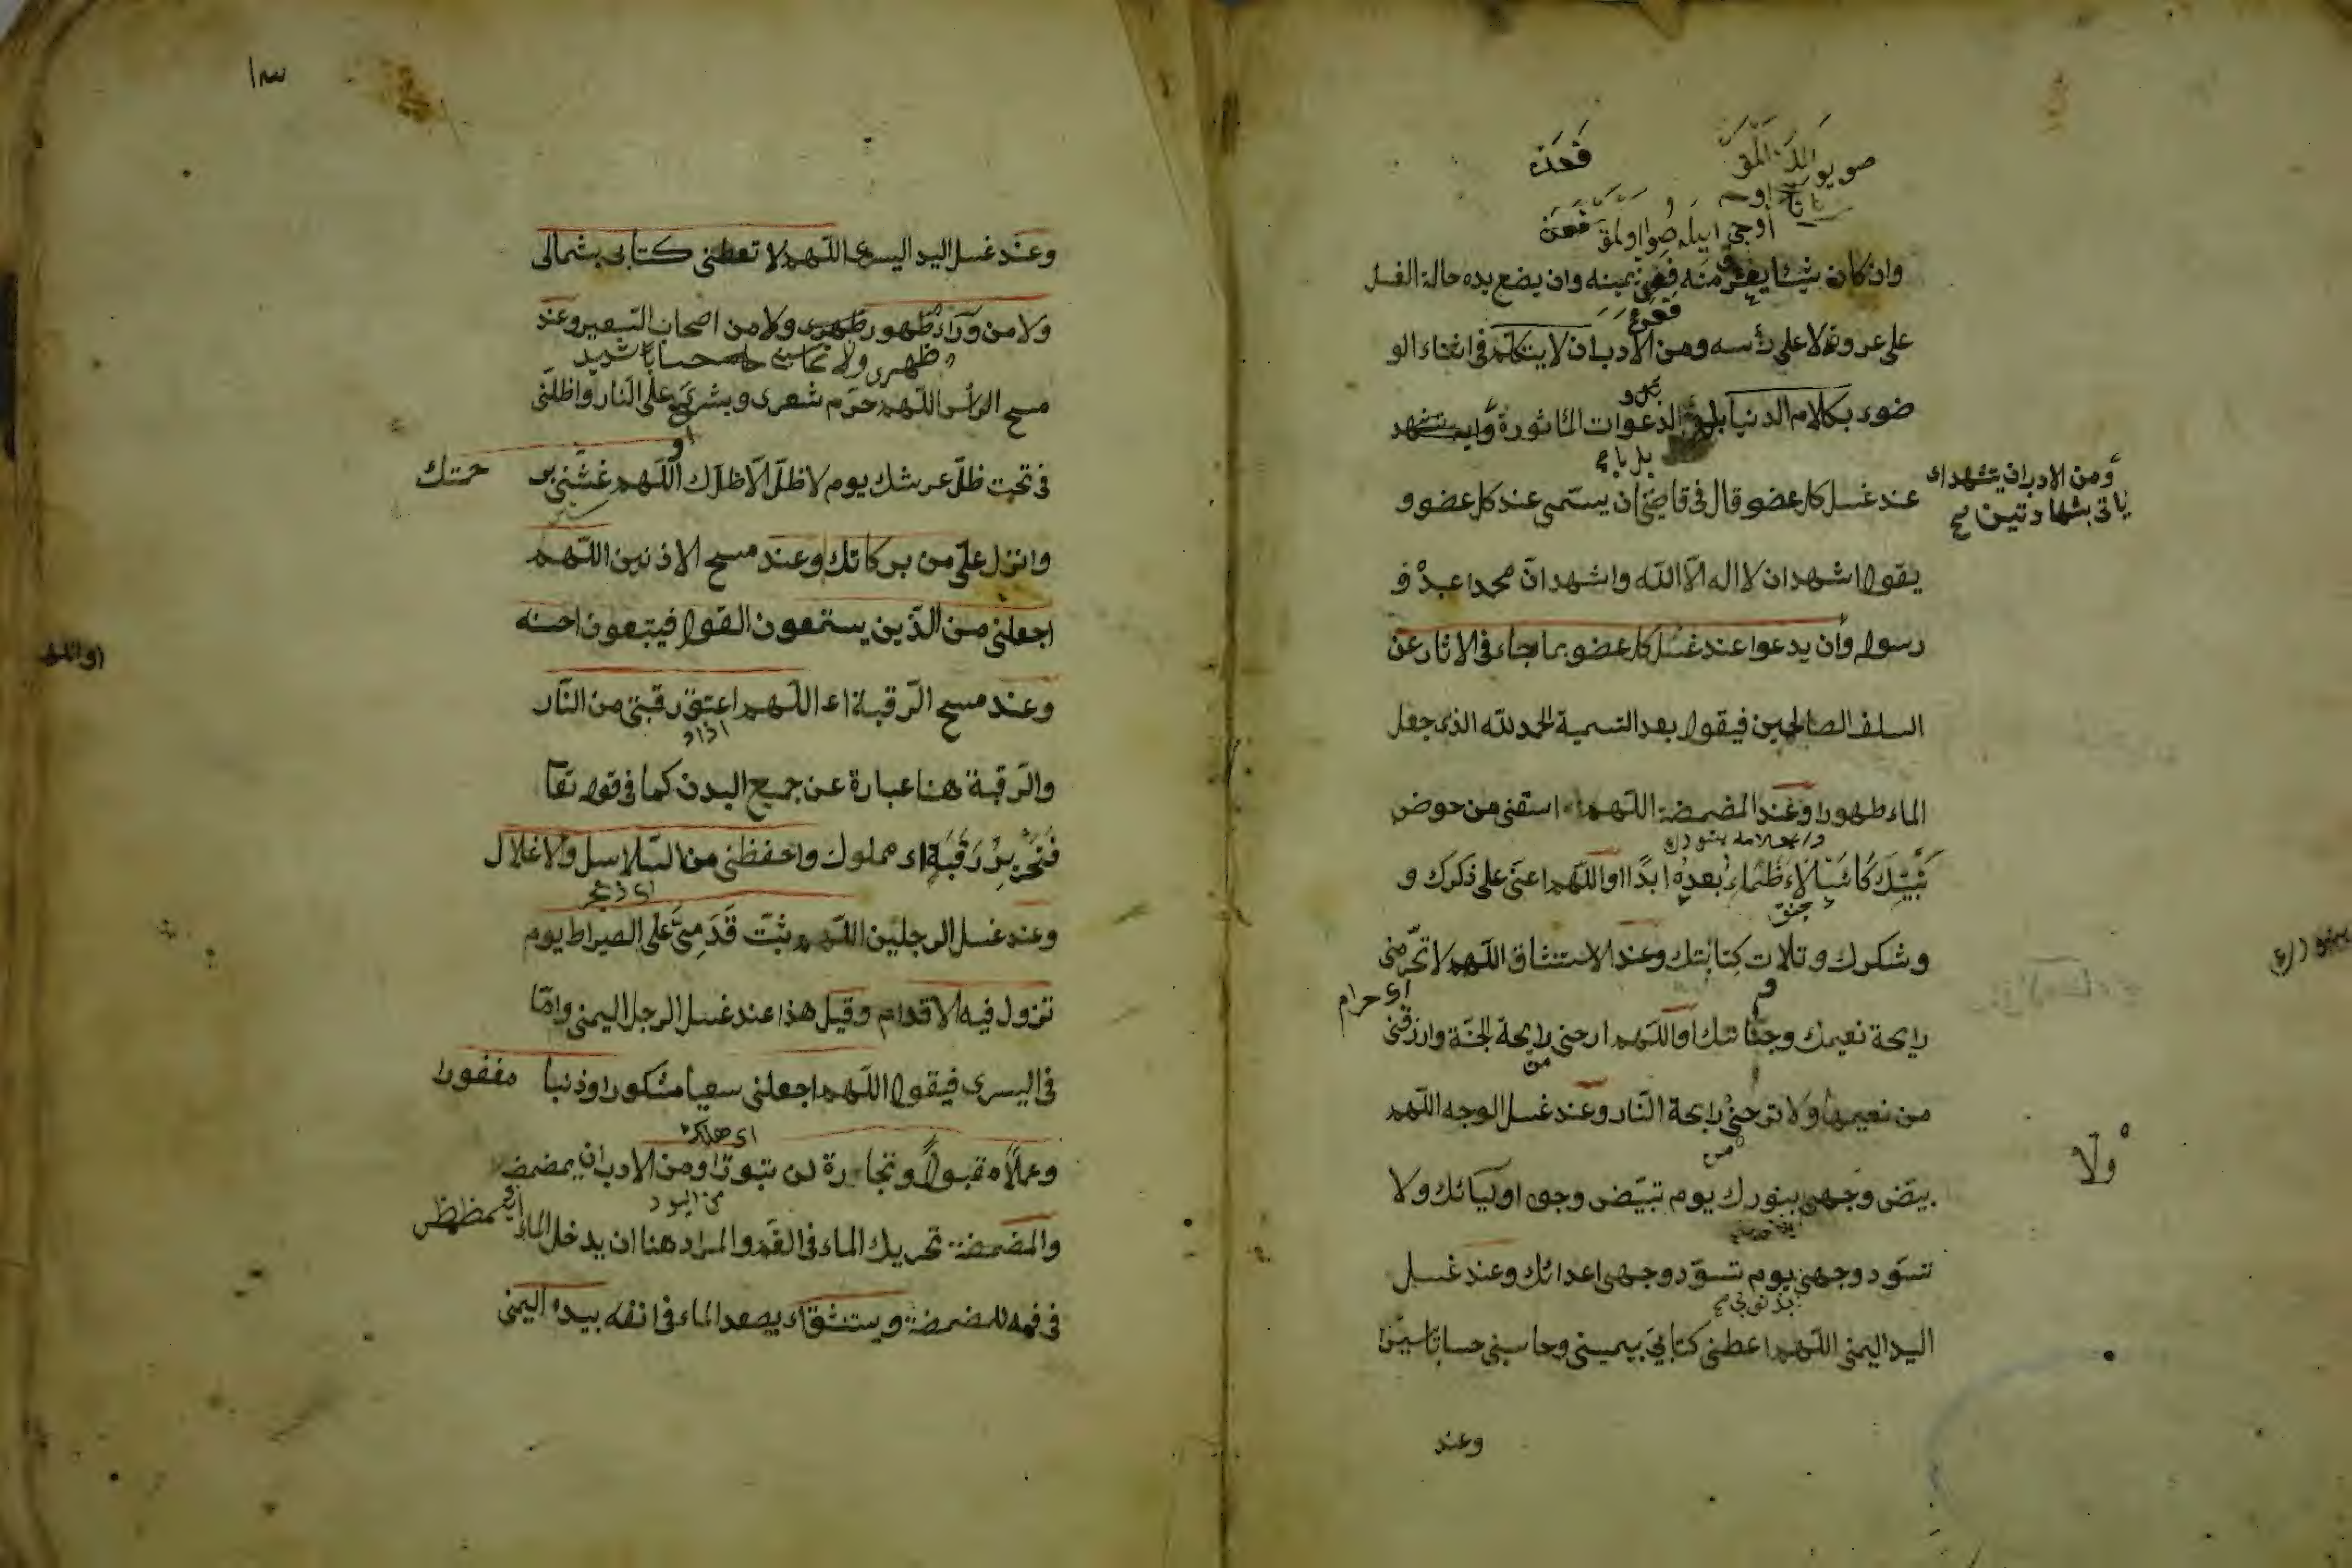 فحذن
وان كان شيئا يغترف منه فعن يمينه وان يضع يده حالة الغسل
على عروته لا على رأسه ومن الادب ان لا يتكلم فى اثناء الو
ضوء بكلام الدنيا بل الدعوات المأثورة وان يتشهد
ومن الادب ان يتشهد اى
ياتى بشهادتين صح
عند غسل كل عضو قال فى قاضيخان يسمى عند كل عضو و
يقول اشهد ان لا اله الا الله واشهد ان محمدا عبده و
رسوله وأن يدعوا عند غسل كل عضو بما جاء فى الاثار عن
السلف الصالحين فيقول بعد التسمية الحمد لله الذى جعل
الماء طهورا وعند المضمضة اللهم اسقنى من حوض
نبيك كأسا لا اظماء بعده ابدا او اللهم اعنى على ذكرك و
وشكرك وتلات كتابتك وعند الاستنشاق اللهم لا تحرمنى
اى حرام
رايحة نعيمك وجناتك او اللهم ارحنى رايحة الجنة وارزقنى
من نعيمها ولا ترحنى رايحة النار وعند غسل الوجه اللهم
من
ولا
بيض وجهى بنورك يوم تبيض وجوه اوليائك ولا
تسود وجهى يوم تسود وجهى اعدائك وعند غسل
بذنوبى صح
اليد اليمنى اللهم اعطنى كتابى بيمينى وحاسبنى حسابا يسيرا
وعند
وعند غسل اليد اليسرى اللهم لا تعطنى كتابى بشمالى
ولا من وراء ظهور ظهرى ولا من اصحاب السعير وعند
ظهرى ولا تحاسبنى حسابا شديد
مسح الرأس اللهم حرم شعرى وبشرى على النار واظلنى
او
فى تحت ظل عرشك يوم لا ظل الا ظلك اللهم غشنى بر حمتك
وانزل على من بركاتك وعند مسح الاذنين اللهم
اجعلنى من الذين يستمعون القول فيتبعون احسنه
وعند مسح الرقبة اى اللهم اعتق رقبتى من النار
والرقبة هنا عبارة عن جميع البدن كما فى قوله تعا
فَتَحْرِيرُ رَقَبَةٍ اى مملوك واحفظنى من السلاسل والاغلال
وعند غسل الرجلين اللهم ثبت قدمى على الصراط يوم
تزول فيه الاقدام وقيل هذا عند غسل الرجل اليمنى واما
فى اليسرى فيقول اللهم اجعلنى سعيا مشكورا وذنبا مغفورا
اى هلاك
وعملا مقبولا وتجارة لن تبورا ومن الادب ان يمضمض
من البور
والمضمضة تحريك الماء فى الفم والمراد هنا ان يدخل الماء
فى فمه للمضمضة ويستنشق اى يصعد الماء فى انفه بيده اليمنى